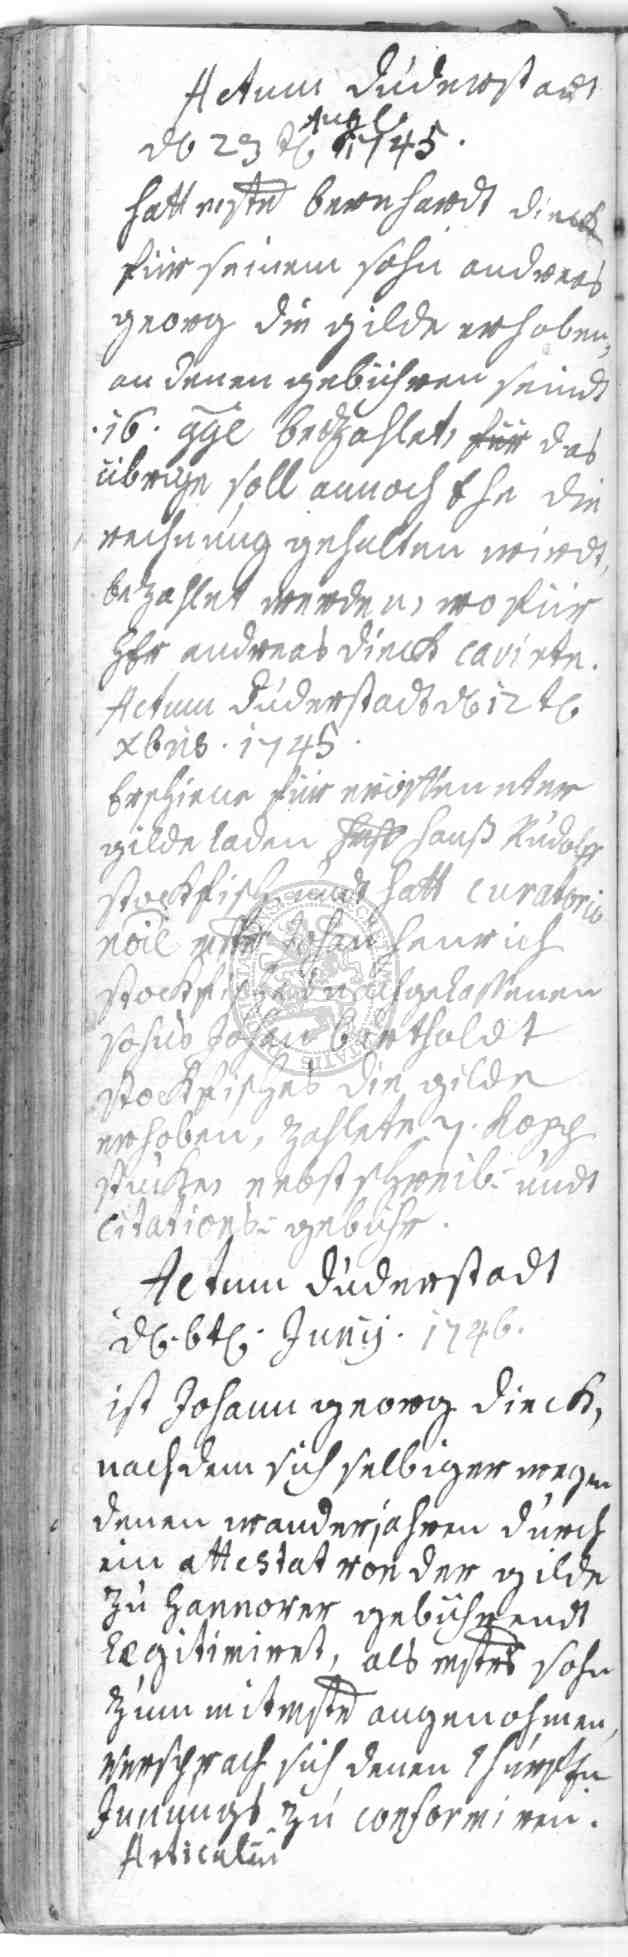 Actum Duderstadt
d 23 t Augl. 1745.
hatt mstr bernhardt dieck
für seinem sohn andreas
georg die gilde erhoben,
an denen gebühren seindt
16. ggl bezahlet, für das
übrige soll annoch ehe die
rechnung gehalten wirdt,
bezahlet werden, wo für
Hr andreas dieck cavirte.
Actum Duderstadt d 12 t
xbris. 1745.
Erschiene für eröffneter
gilde laden hanß Rudolff
stockfisch undt hatt curatorio
noie mstr Johan Henrich
stockfisches nachgelassenen
sohns Johan bertholdt
stockfisches die gilde
erhoben, zahlete 7. Kopf
stücke, nebst schreib- undt
citations- gebühr.
Actum Duderstadt
d. 6t. Junij. 1746.
ist Johann georg dieck,
nachdem sich selbiger wegen
denen wanderjahren durch
ein attestat von der gilde
zu Hannover gebührendt
legitimiret, als mstrs sohn
zum mitmstr angenohmen,
versprach sich denen Churfstn
Innungs zu conformiren.
Articulen